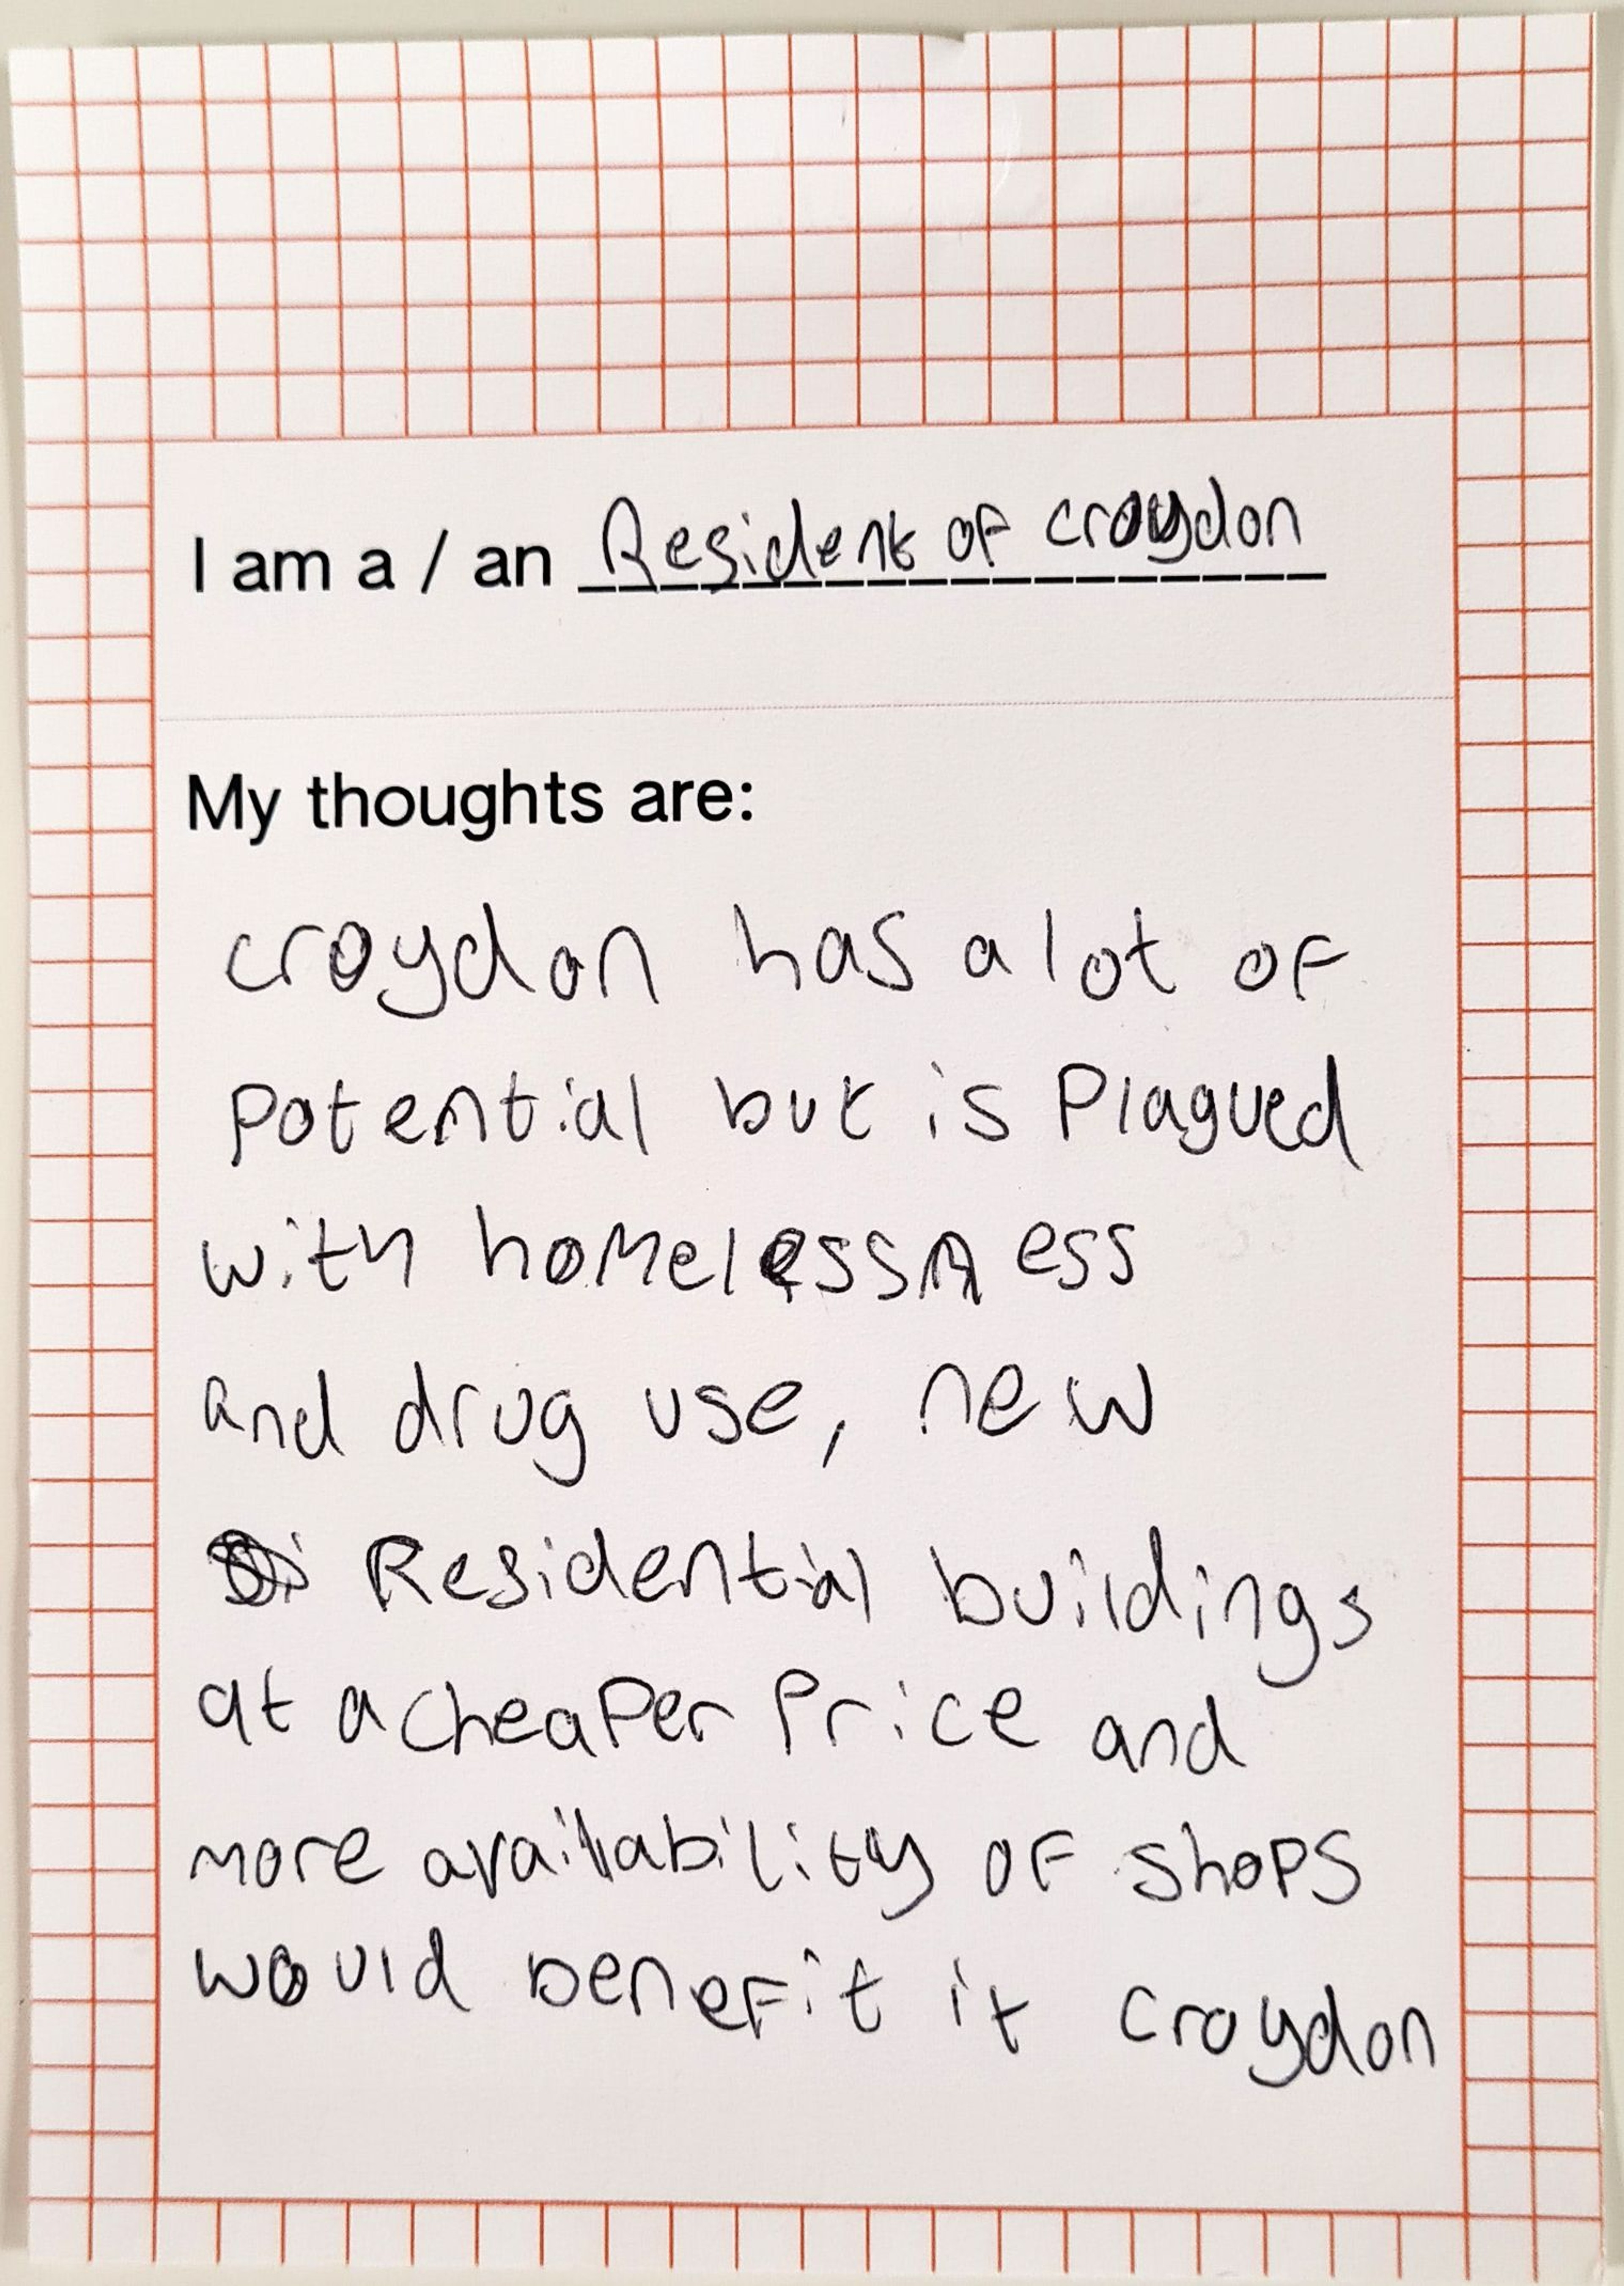 I am a / an Resident of croydon
My thoughts are:
croydon has a lot of
potential but is Plagued
with homelessness
and drug use, new
Residential buildings
at a cheaper Price and
more availability of shops
would benefit it croydon